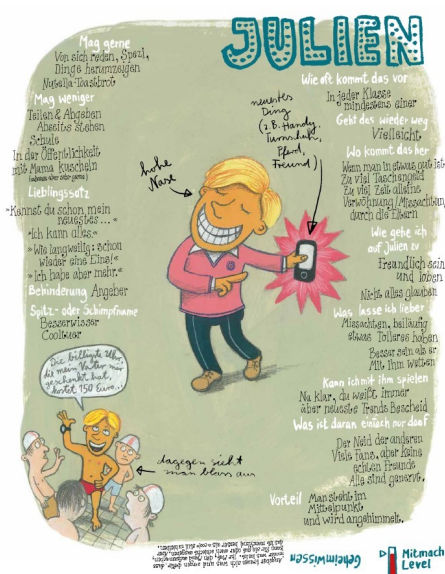 JULIEN
Mag gerne
Von sich reden, Spezi,
Dinge herumzeigen
Nutella-Toastbrot
Mag weniger
Teilen & Abgeben
Abseits stehen
Schule
In der Öffentlichkeit
mit Mama kuscheln
Lieblingssatz
»Kennst du schon mein
neuestes ... «
»Ich kann alles.«
»Wie langweilig: schon
wieder eine Eins!«
»Ich habe aber mehr.«
Behinderung Angeber
Spitz- oder Schimpfname
Besserwisser
Cooltuer
hohe
Nase
neuestes
Ding
(z.B. Handy,
Turnschuh,
Pferd,
Freund)
Wie oft kommt das vor
In jeder Klasse
mindestens einer
Geht das wieder weg
Vielleicht
Wo kommt das her
Wenn man in etwas gut ist
Zu viel Taschengeld
Zu viel Zeit alleine
Verwöhnung/Missachtung
durch die Eltern
Wie gehe ich
auf Julien zu
Freundlich sein
und loben
Nicht alles glauben
Was lasse ich lieber
Missachten, beiläufig
etwas Tolleres haben
Besser sein als er
Mit ihm wetten
Kann ich mit ihm spielen
Na klar, du weißt immer
über neueste Trends Bescheid
Was ist daran einfach nur doof
Der Neid der anderen
Viele Fans, aber keine
echten Freunde
Alle sind genervt.
Vorteil Man steht im
Mittelpunkt
und wird angehimmelt.
Die billigste Uhr,
die mein Vater mir
geschenkt hat,
kostet 150 Euro.
dagegen sieht
man blass aus
Geheimwissen
Mitmach
Level